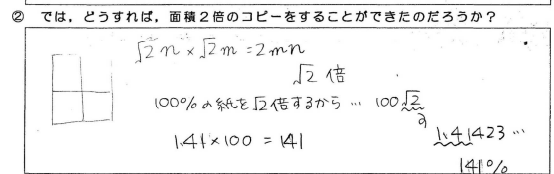 ② では，どうすれば，面積２倍のコピーをすることができたのだろうか？
√2n×√2m=2mn
√2倍
100%の紙を√2倍するから… 100√2
1.41423…
1.41×100=141
141%